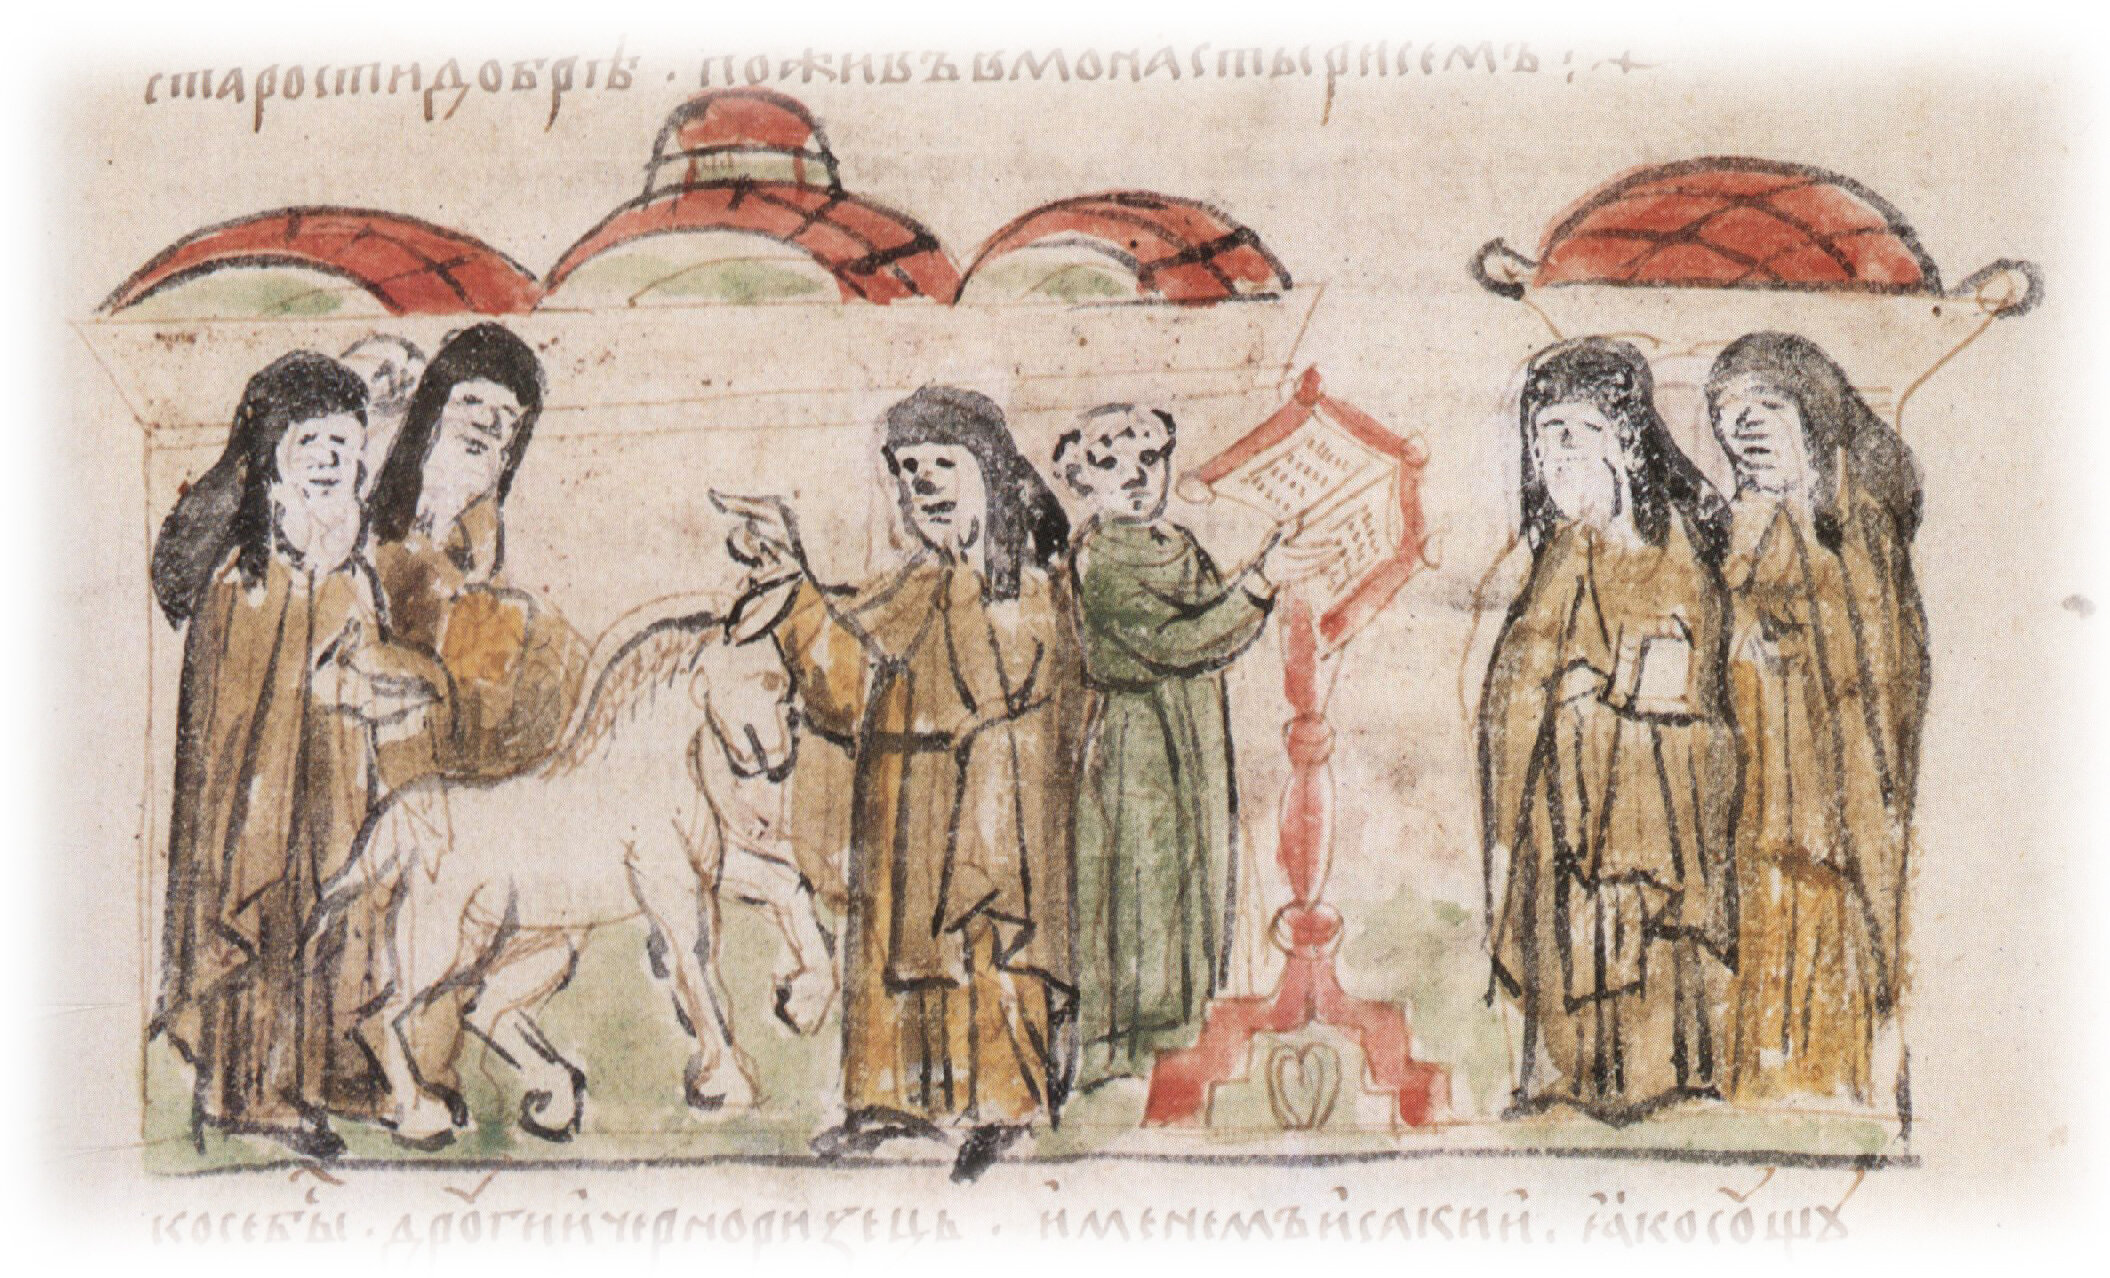 старостидобрѣ · поживъвмонастырисемъ : +
косебы · другийчерноризець · именемъисакий · ꙗкосущю